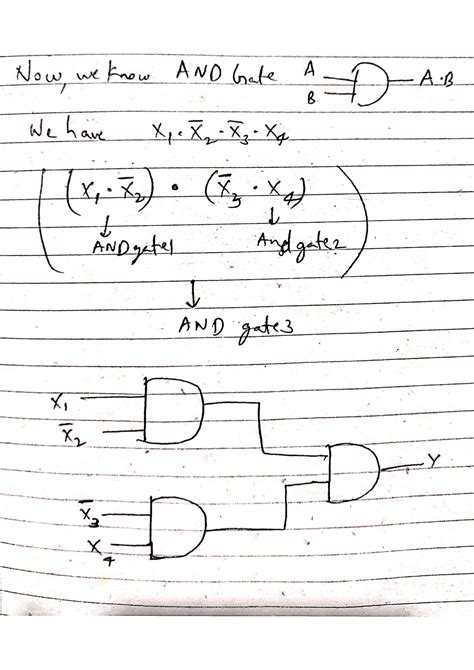 Now, we know AND Gate A B A.B
We have X₁ . X̅₂ . X̅₃ . X₄
((X₁ . X̅₂) . (X̅₃ . X₄))
AND gate1 And gate2
AND gate3
X₁
X̅₂
Y
X̅₃
X₄